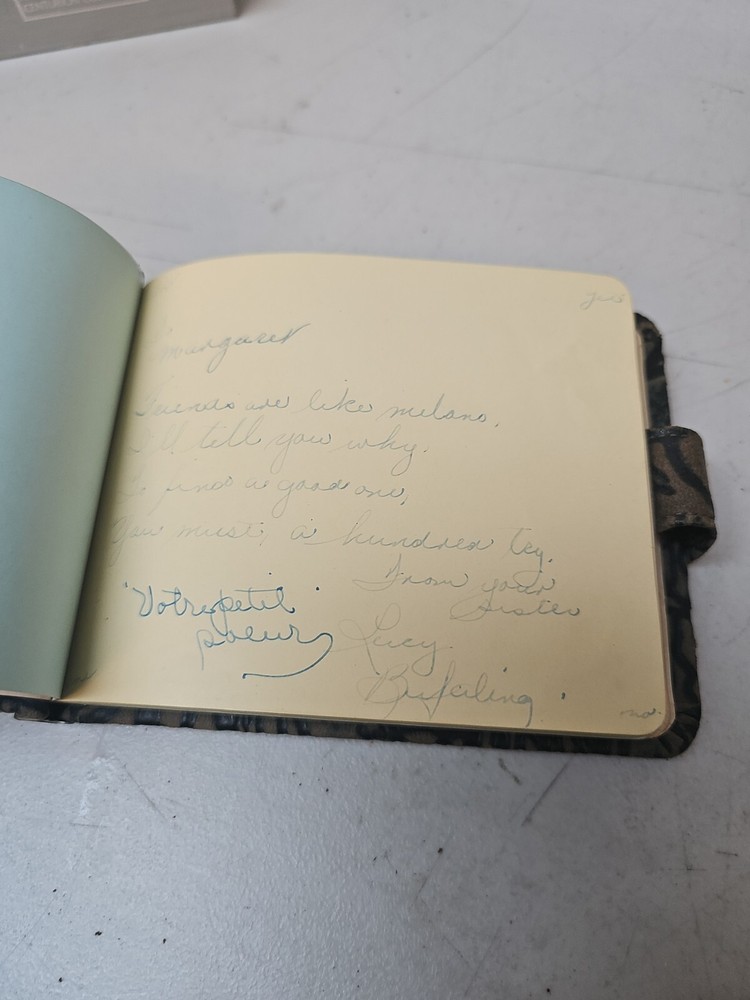 Margaret
Friends are like melons,
I'll tell you why.
To find a good one,
You must, a hundred try.
From your
Sister
Lucy
"Votre petit
soeur"